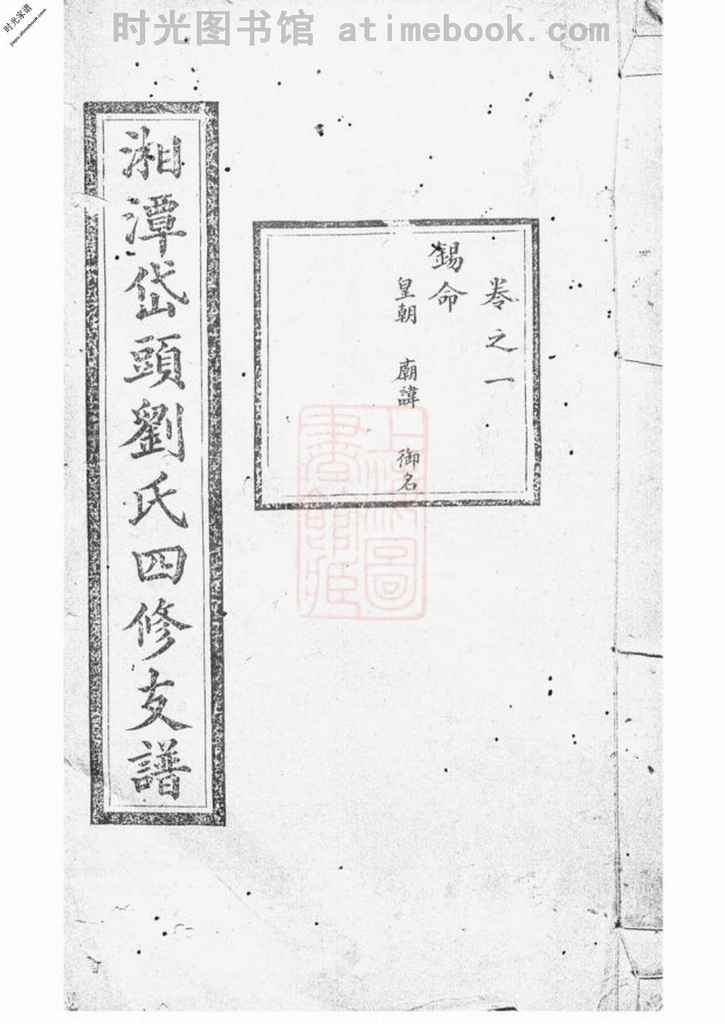 时光图书馆 atimebook.com
时光家谱
湘潭岱頭劉氏四修支譜
卷之一
錫命
皇朝 廟諱 御名